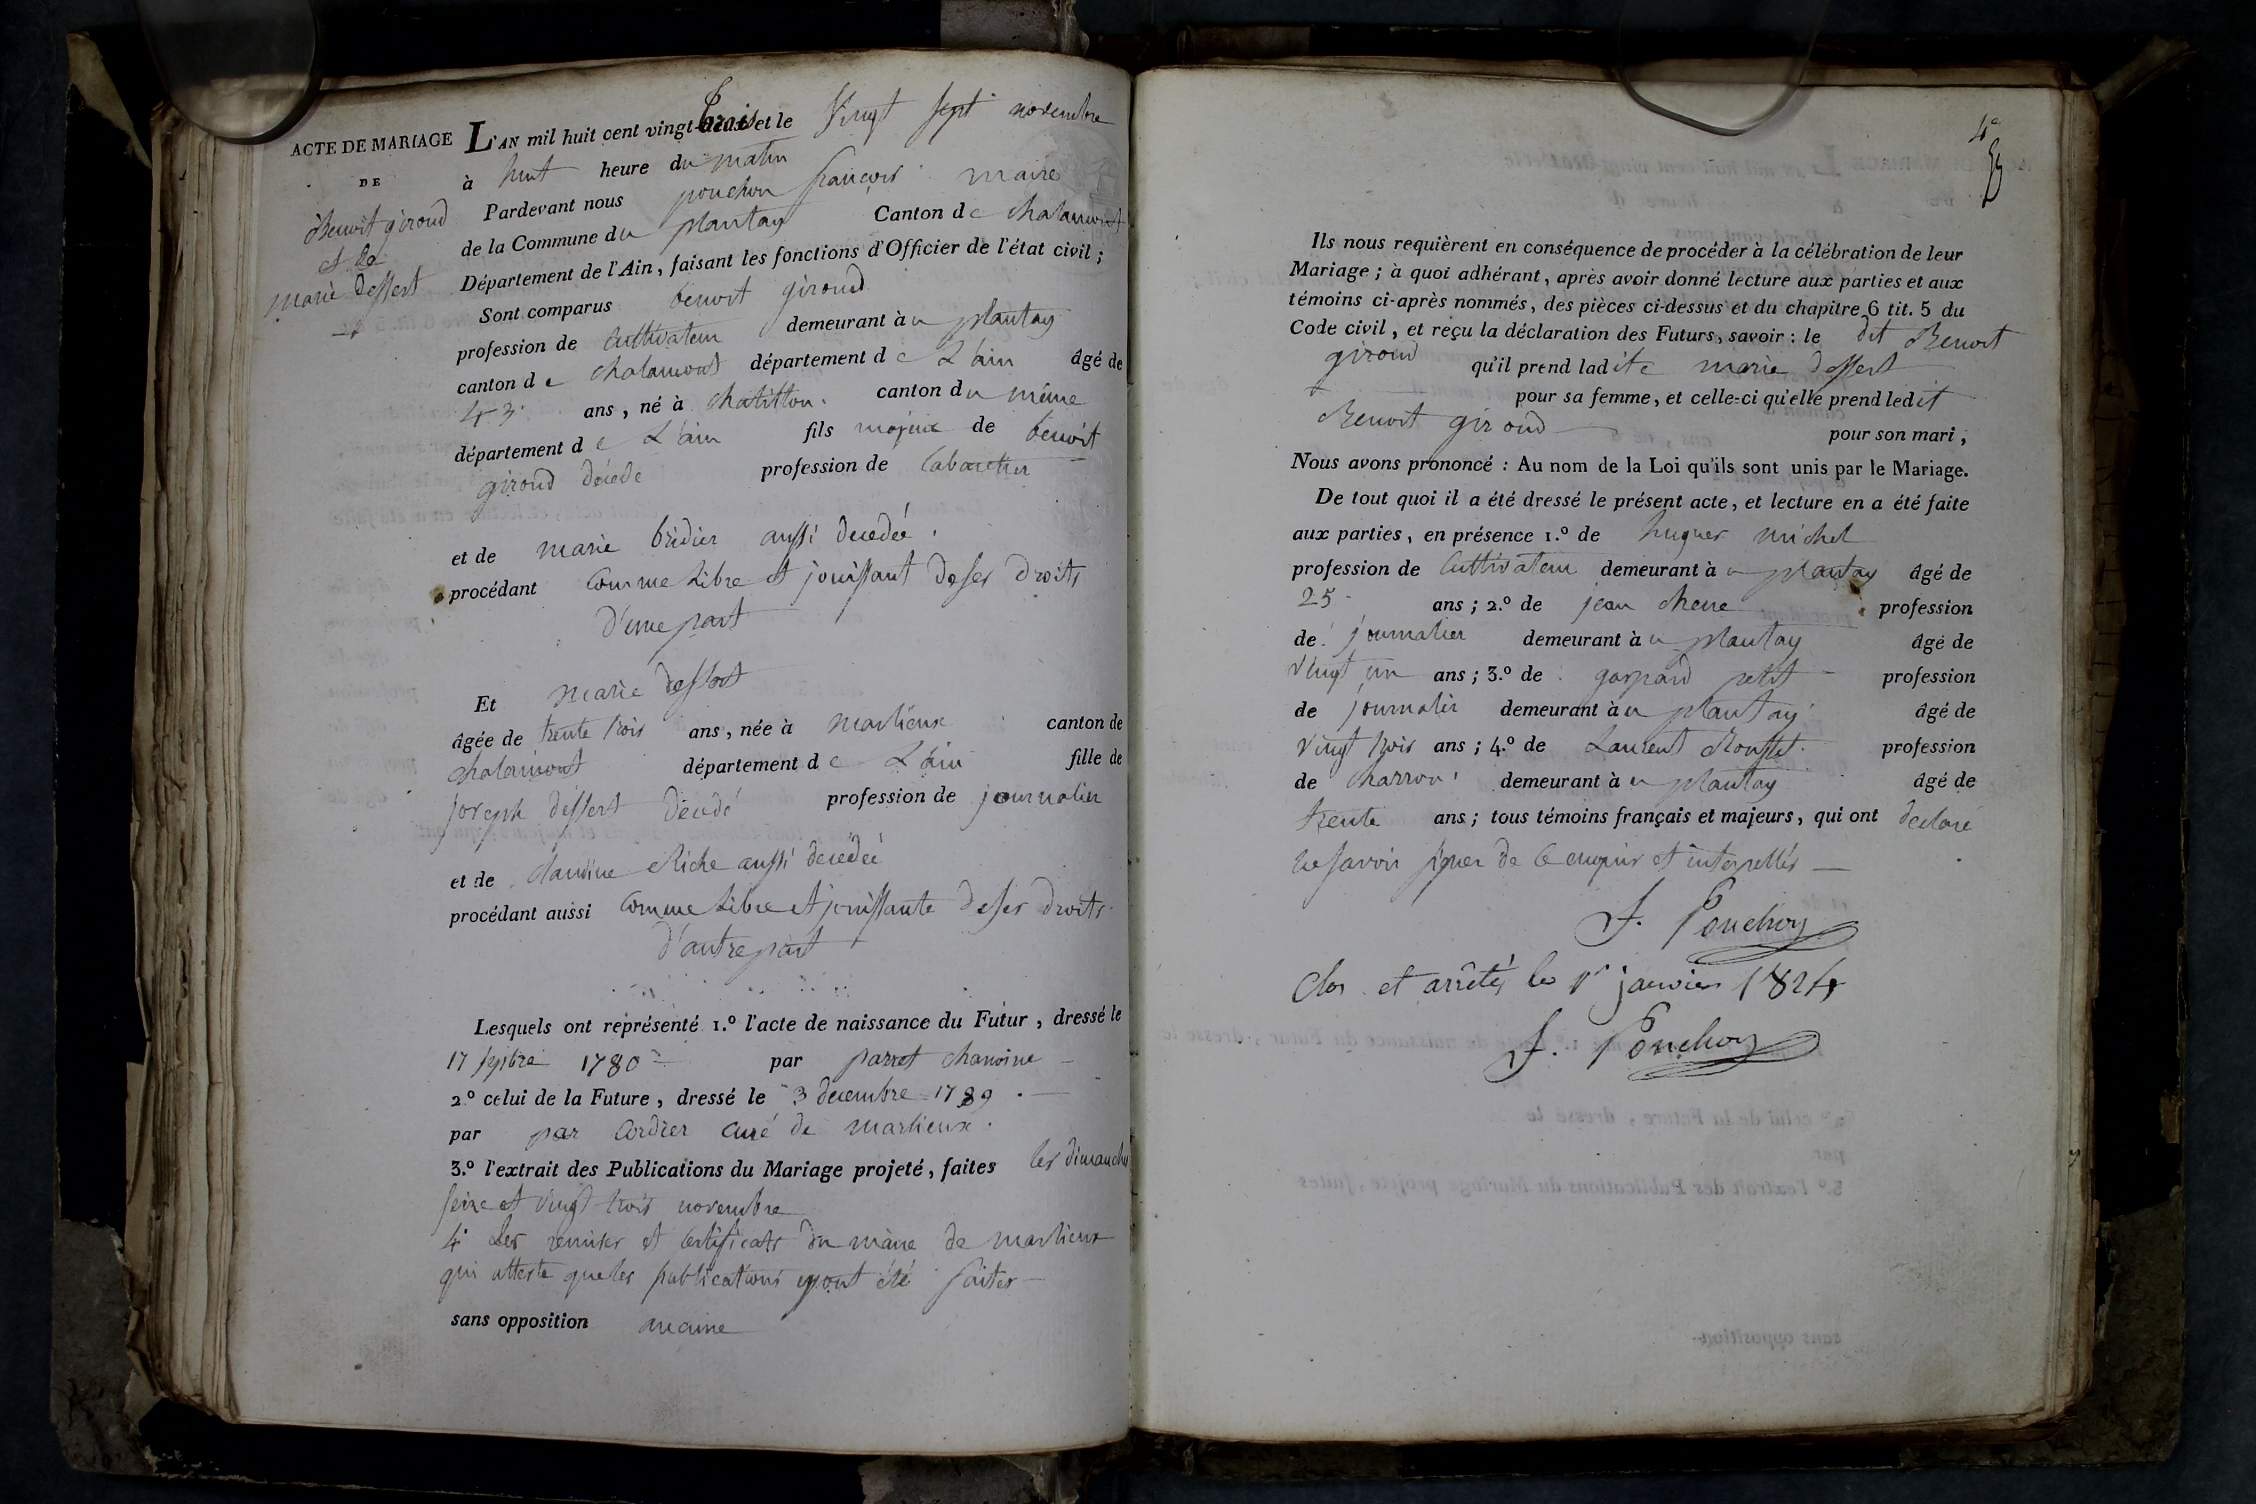 ACTE DE MARIAGE L'AN mil huit cent vingt-trois et le Vingt sept novembre
DE à huit heure du matin
Benoit giroud Pardevant nous pouchon françois maire
et de de la Commune du plantay Canton de chalamont
marie dessert Département de l'Ain, faisant les fonctions d'Officier de l'état civil ;
Sont comparus benoit giroud
profession de Cultivateur demeurant à u plantay
canton de chalamont département de L'ain âgé de
43 ans, né à chatillon canton du même
département de L'ain fils majeur de benoit
giroud décédé profession de Cabaretier
et de marie bridier aussi decedée
procédant Comme Libre et jouissant de ses Droits
D'une part
Et Marie dessert
âgée de trente trois ans, née à marlieux canton de
chalamont département de L'ain fille de
joseph dessert décédé profession de journalier
et de claudine Riche aussi decedée
procédant aussi Comme Libre et jouissante de ses droits
d'autre part
Lesquels ont représenté 1.º l'acte de naissance du Futur, dressé le
17 septbre 1780 par parret chanoine
2.º celui de la Future, dressé le 3 decembre 1789
par par Cordier curé de marlieux
3.º l'extrait des Publications du Mariage projeté, faites les dimanches
seize et vingt trois novembre
4º Les remises et Certificats du maire de marlieux
qui atteste que les publications y ont été faites
sans opposition aucune
4e
Ils nous requièrent en conséquence de procéder à la célébration de leur
Mariage ; à quoi adhérant, après avoir donné lecture aux parties et aux
témoins ci-après nommés, des pièces ci-dessus et du chapitre 6 tit. 5 du
Code civil, et reçu la déclaration des Futurs, savoir : le dit Benoit
giroud qu'il prend ladite marie dessert
pour sa femme, et celle-ci qu'elle prend ledit
Benoit giroud pour son mari,
Nous avons prononcé : Au nom de la Loi qu'ils sont unis par le Mariage.
De tout quoi il a été dressé le présent acte, et lecture en a été faite
aux parties, en présence 1.º de hugues michel
profession de Cultivateur demeurant à u plantay âgé de
25 ans ; 2.º de jean chene profession
de journalier demeurant à u plantay âgé de
vingt un ans ; 3.º de gaspard petit profession
de journalier demeurant à u plantay âgé de
vingt trois ans ; 4.º de Laurent Rousset profession
de charron demeurant à u plantay âgé de
trente ans ; tous témoins français et majeurs, qui ont declaré
ne savoir signer de Ce enquis et interpellés
F. Pouchon
Clos et arrêtés le 1r janvier 1824
F. Pouchon